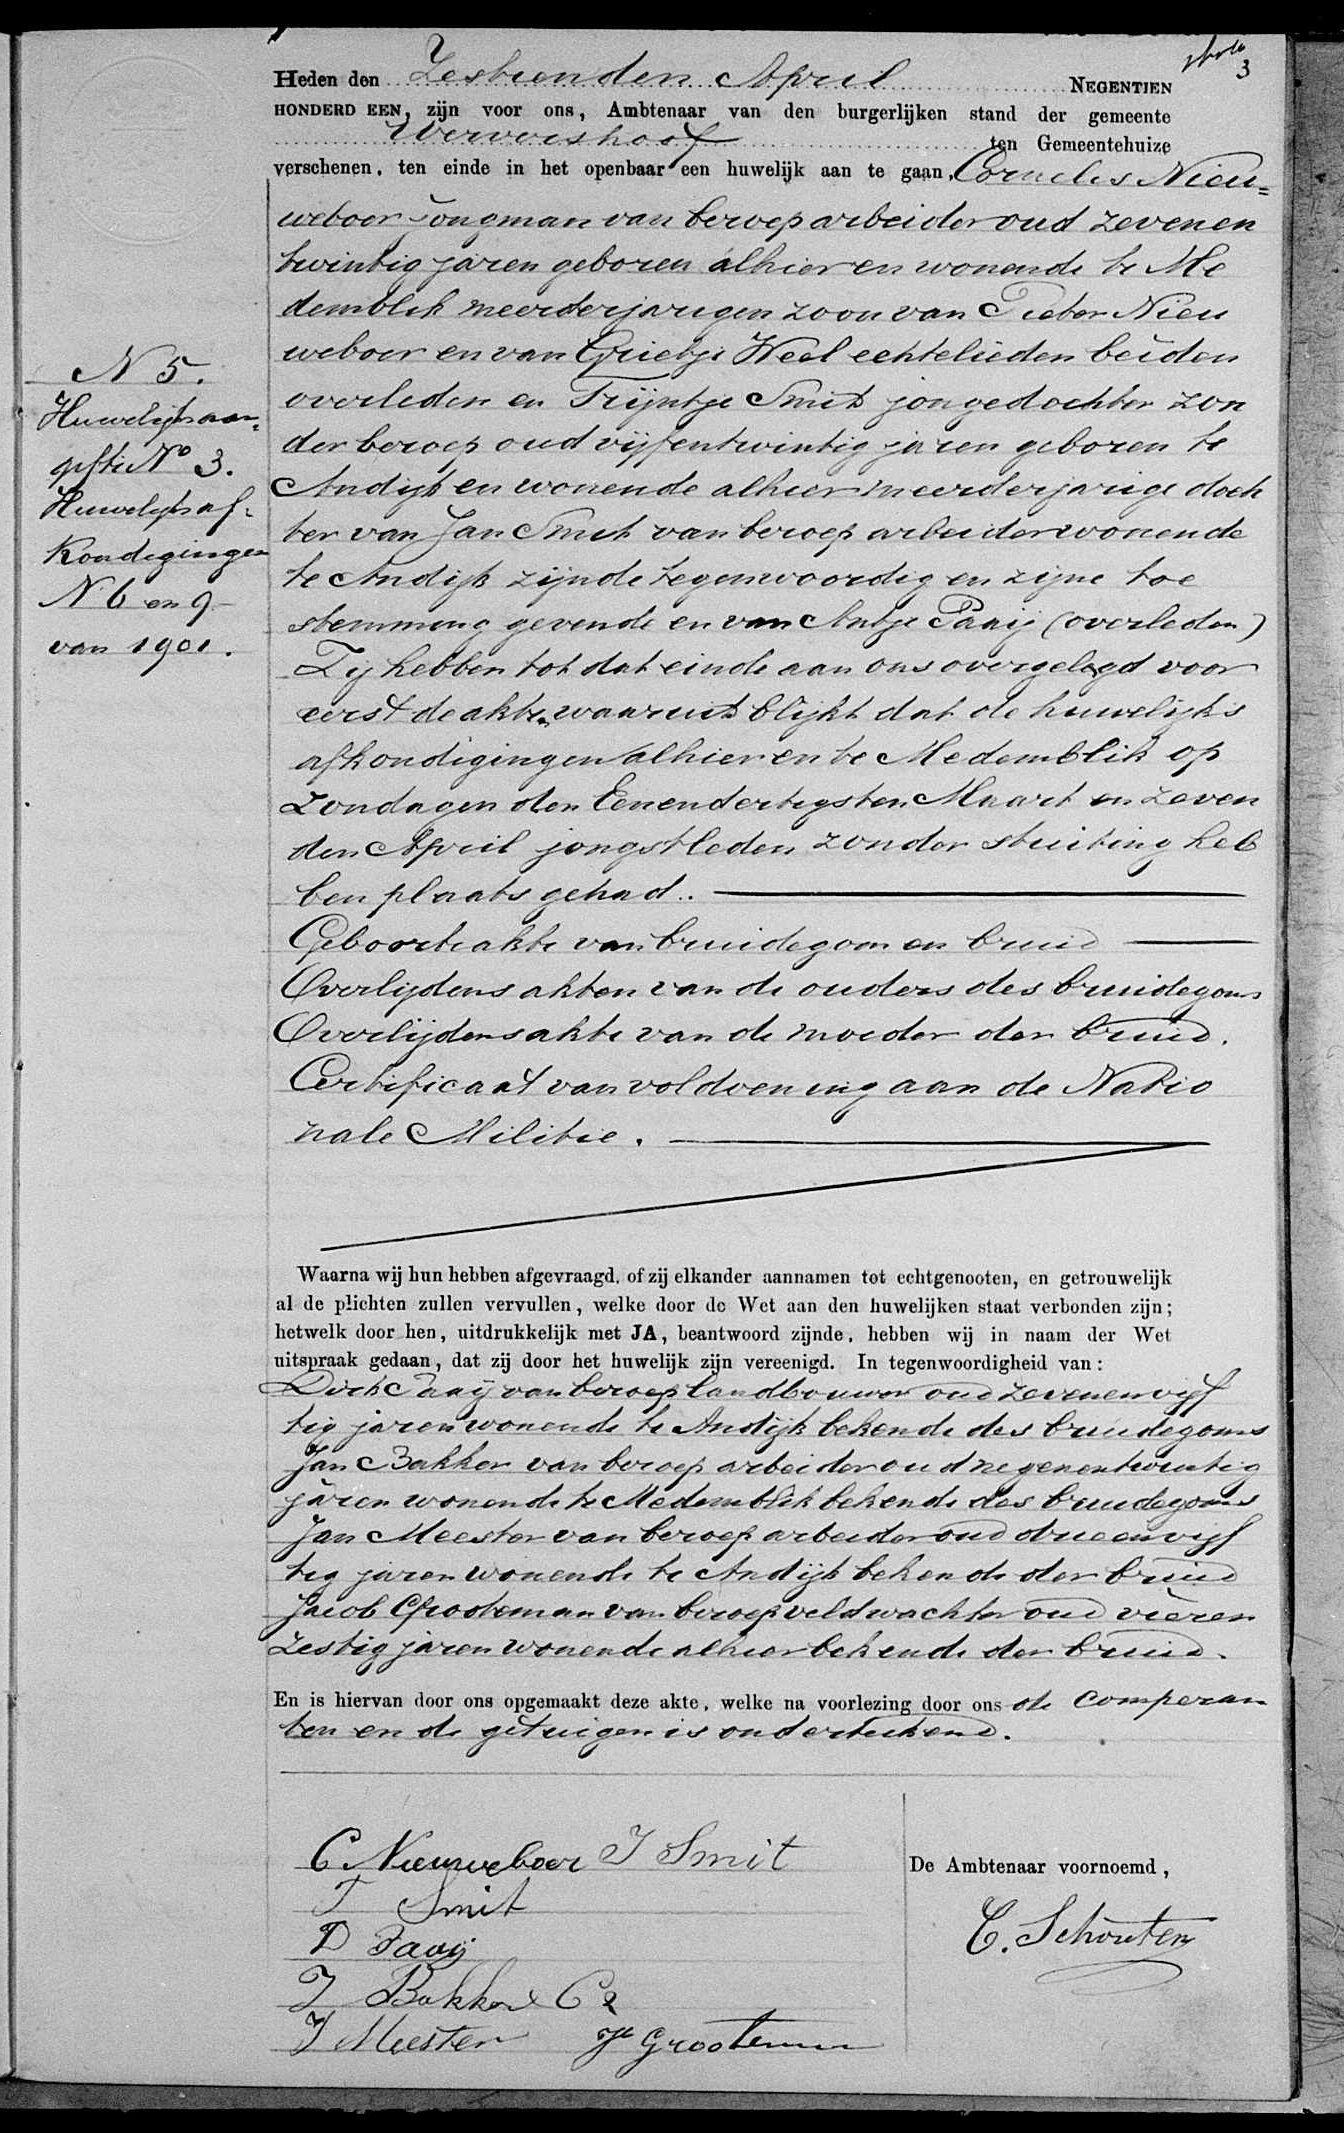 3
Heden den Zestienden April NEGENTIEN
HONDERD EEN, zijn voor ons, Ambtenaar van den burgerlijken stand der gemeente
Wervershoof ten Gemeentehuize
verschenen, ten einde in het openbaar een huwelijk aan te gaan, Cornelis Nieu=
weboer jongman van beroep arbeider oud zevenen
twintig jaren geboren alhier en wonende te Me
demblik meerderjarigen zoon van Pieter Nieu
weboer en van Grietje Weel echtelieden beiden
overleden en Trijntje Smit jongedochter zon
der beroep oud vijfentwintig jaren geboren te
Andijk en wonende alhier meerderjarige doch
ter van Jan Smit van beroep arbeider wonende
te Andijk zijnde tegenwoordig en zijne toe
stemming gevende en van Antje Paaij (overleden)
Zij hebben tot dat einde aan ons overgelegd voor
eerst de akten waaruit blijkt dat de huwelijks
afkondigingen alhier en te Medemblik op
Zondagen den Eenendertigsten Maart en zeven
den April jongstleden zonder stuiting heb
ben plaats gehad.
Geboorteakte van bruidegom en bruid
Overlijdens akten van de ouders des bruidegoms
Overlijdensakte van de moeder der bruid.
Certificaat van voldoening aan de Natio
nale Militie.
N 5.
Huwelijksaan=
gifte No 3.
Huwelijksaf=
kondigingen
N. 6 en 9
van 1901.
Waarna wij hun hebben afgevraagd, of zij elkander aannamen tot echtgenooten, en getrouwelijk
al de plichten zullen vervullen, welke door de Wet aan den huwelijken staat verbonden zijn;
hetwelk door hen, uitdrukkelijk met JA, beantwoord zijnde, hebben wij in naam der Wet
uitspraak gedaan, dat zij door het huwelijk zijn vereenigd. In tegenwoordigheid van:
Dirk Paaij van beroep landbouwer oud zevenenvijf
tig jaren wonende te Andijk bekende des bruidegoms
Jan Bakker van beroep arbeider oud negenentwintig
jaren wonende te Medemblik bekende des bruidegoms
Jan Meester van beroep arbeider oud drieenvijf
tig jaren wonende te Andijk bekende der bruid
Jacob Grooteman van beroep veldwachter oud vieren
zestig jaren wonende alhier bekende der bruid.
En is hiervan door ons opgemaakt deze akte, welke na voorlezing door ons de comparan
ten en de getuigen is onderteekend.
C Nieuweboer J Smit
T Smit
D Paaij
J Bakker Cz
J Meester Jb Grooteman
De Ambtenaar voornoemd,
C. Schouten